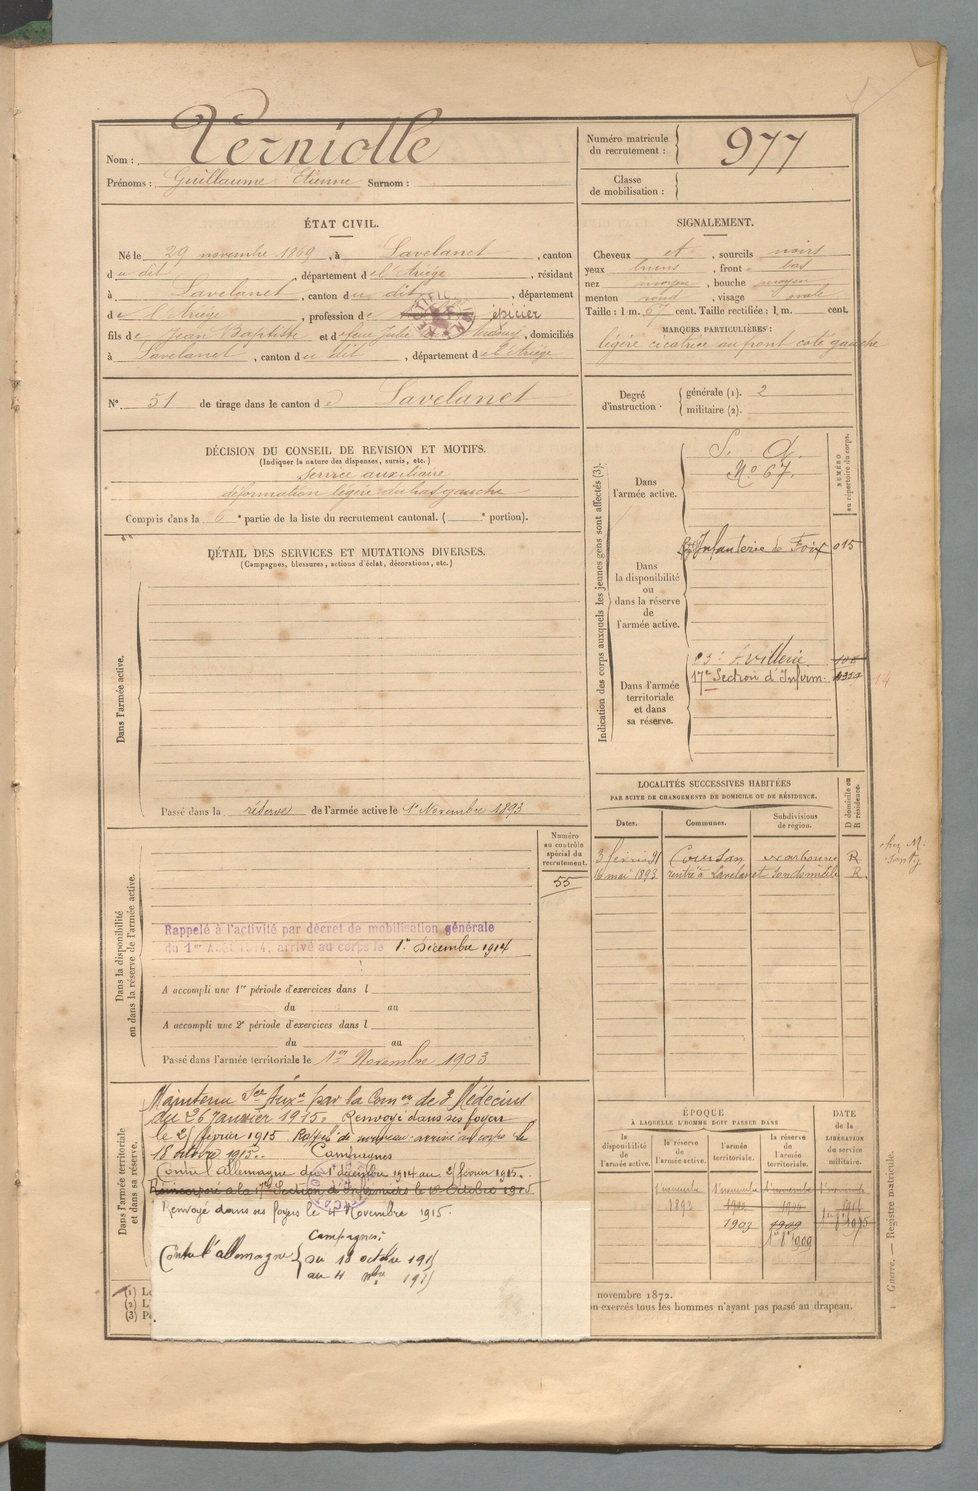 Nom : Verniolle
Prénoms : Guillaume Etienne Surnom :
Numéro matricule du recrutement : 977
Classe de mobilisation :
ÉTAT CIVIL.
Né le 29 novembre 1869, à Lavelanet, canton
du dit, département de l'Ariège, résidant
à Lavelanet, canton du dit, département
de l'Ariège, profession de épicier
fils de Jean Baptiste et de feue Julie, domiciliés
à Lavelanet, canton du dit, département de l'Ariège
SIGNALEMENT.
Cheveux et, sourcils noirs
yeux bruns, front bas
nez moyen, bouche moyen
menton rond, visage ovale
Taille : 1 m. 67 cent. Taille rectifiée : 1 m. cent.
MARQUES PARTICULIÈRES :
légère cicatrice au front coté gauche
N° 51 de tirage dans le canton de Lavelanet
Degré d'instruction : générale (1). 2
militaire (2).
DÉCISION DU CONSEIL DE REVISION ET MOTIFS.
(Indiquer la nature des dispenses, sursis, etc.)
Service auxiliaire
déformation légère du bas gauche
Compris dans la 6e partie de la liste du recrutement cantonal. ( e portion).
DÉTAIL DES SERVICES ET MUTATIONS DIVERSES.
(Campagnes, blessures, actions d'éclat, décorations, etc.)
Dans l'armée active.
Passé dans la réserve de l'armée active le 1er Novembre 1893
Indication des corps auxquels les jeunes gens sont affectés (3).
NUMÉRO au répertoire du corps.
Dans l'armée active.
S. A.
No 67.
Dans la disponibilité ou dans la réserve de l'armée active.
Infanterie de Foix 015
Dans l'armée territoriale et dans sa réserve.
17e Section d'Infirm.
14
LOCALITÉS SUCCESSIVES HABITÉES
PAR SUITE DE CHANGEMENTS DE DOMICILE OU DE RÉSIDENCE.
Dates. Communes. Subdivisions de région. D domicile ou R résidence.
3 février 91 Coursan Narbonne R
16 mai 1893 rentré à Lavelanet R.
chez M.
Dans la disponibilité ou dans la réserve de l'armée active.
Numéro au contrôle spécial du recrutement.
55
Rappelé à l'activité par décret de mobilisation générale
du 1er Août 1914, arrivé au corps le 1er Décembre 1914
A accompli une 1re période d'exercices dans l
du au
A accompli une 2e période d'exercices dans l
du au
Passé dans l'armée territoriale le 1er Novembre 1903
Dans l'armée territoriale et dans sa réserve.
Maintenu Ser Auxre par la Comon de 3 Médecins
du 26 Janvier 1915. Renvoyé dans ses foyers
le 21 février 1915. Rappelé de nouveau arrivé au corps le
18 octobre 1915. Campagnes
Contre l'Allemagne du 1er décembre 1914 au 21 février 1915.
Réincorporé à la 17e Section d'Infirmiers le 18 Octobre 1915
Renvoyé dans ses foyers le 4 Novembre 1915.
Campagnes :
Contre l'allemagne du 18 octobre 1915
au 4 9bre 1915
ÉPOQUE
À LAQUELLE L'HOMME DOIT PASSER DANS
la disponibilité de l'armée active. la réserve de l'armée active. l'armée territoriale. la réserve de l'armée territoriale.
DATE de la LIBÉRATION du service militaire.
1er novembre 1893
1903 1909
(1)
(2)
(3)
novembre 1872.
exercés tous les hommes n'ayant pas passé au drapeau.
Guerre. — Registre matricule.